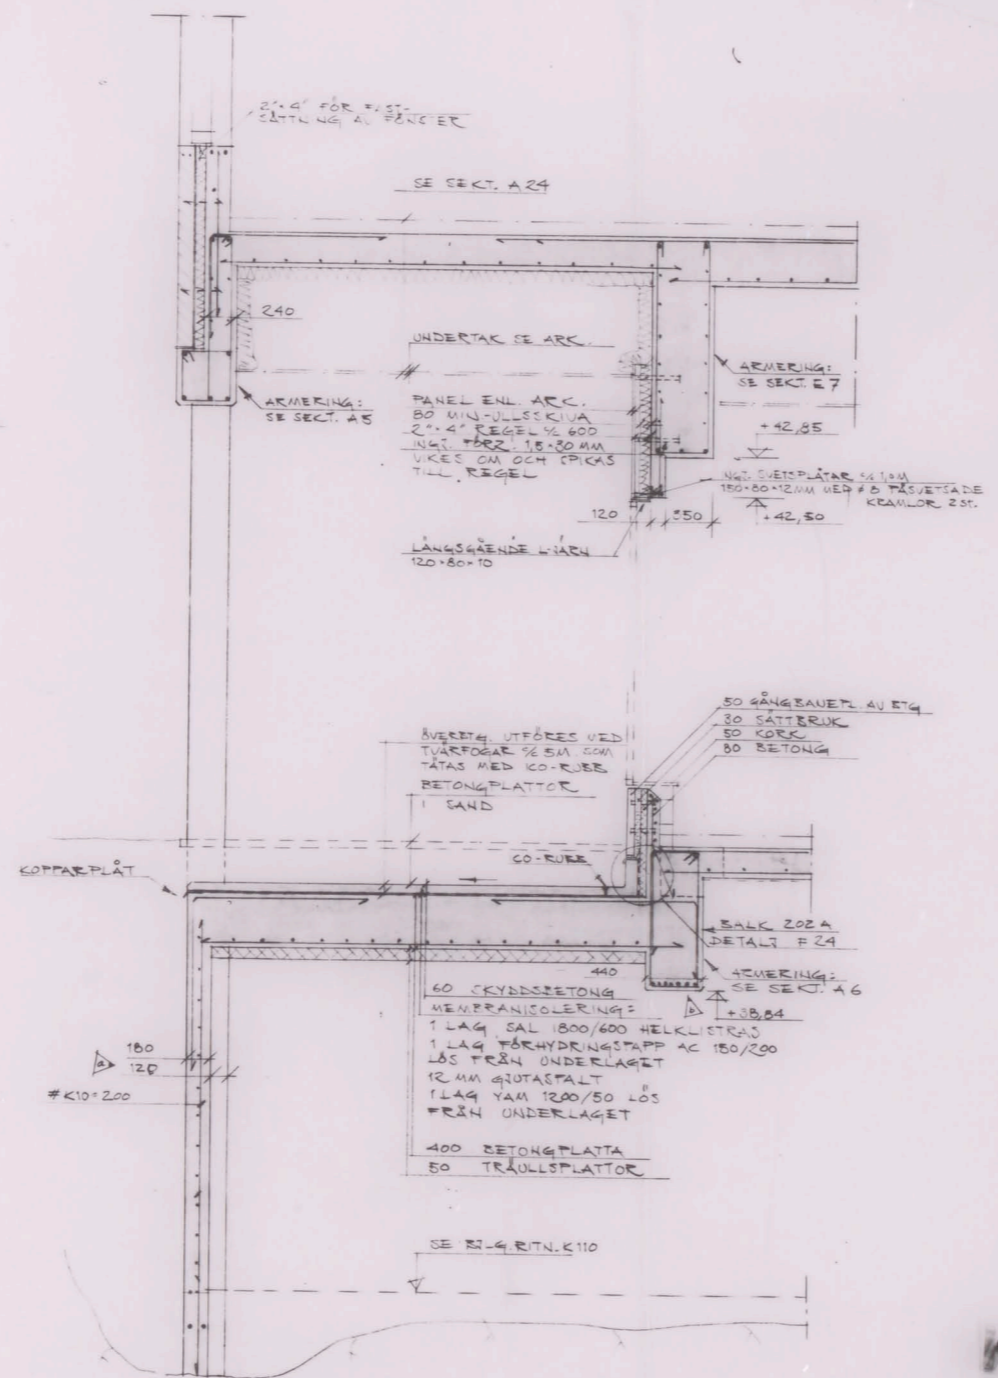 2"×4" FÖR FAST-
SÄTTNING AV FÖNSTER
SE SEKT. A 24
240
UNDERTAK SE ARK.
ARMERING:
SE SEKT. A5
ARMERING:
SE SEKT. E7
PANEL ENL. ARK.
80 MIN-ULLSSKIVA
2"×4" REGEL c/c 600
INGJ. FÖRZ. 1,5×30 MM
VIKES OM OCH SPIKAS
TILL REGEL
+42,85
INGJ. SVETSPLÅTAR c/c 1,0M
150×80×12MM MED ø 8 PÅSVETSADE
KRAMLOR 2 ST.
120
350
+42,50
LÅNGSGÅENDE L-JÄRN
120×80×10
50 GÅNGBANEPL. AV BTG
30 SÄTTBRUK
50 KORK
80 BETONG
ÖVERBTG. UTFÖRES MED
TVÄRFOGAR c/c 5M SOM
TÄTAS MED CO-RUBB
BETONGPLATTOR
I SAND
KOPPARPLÅT
CO-RUBB
BALK 202 A
DETALJ F 24
440
ARMERING:
SE SEKT. A6
b
+38,84
60 SKYDDSBETONG
MEMBRANISOLERING:
1 LAG SAL 1800/600 HELKLISTRAS
1 LAG FÖRHYDRINGSPAPP AC 150/200
LÖS FRÅN UNDERLAGET
12 MM GJUTASFALT
1 LAG YAM 1200/50 LÖS
FRÅN UNDERLAGET
a
180
120
# K10=200
400 BETONGPLATTA
50 TRÄULLSPLATTOR
SE BJ-G. RITN. K110